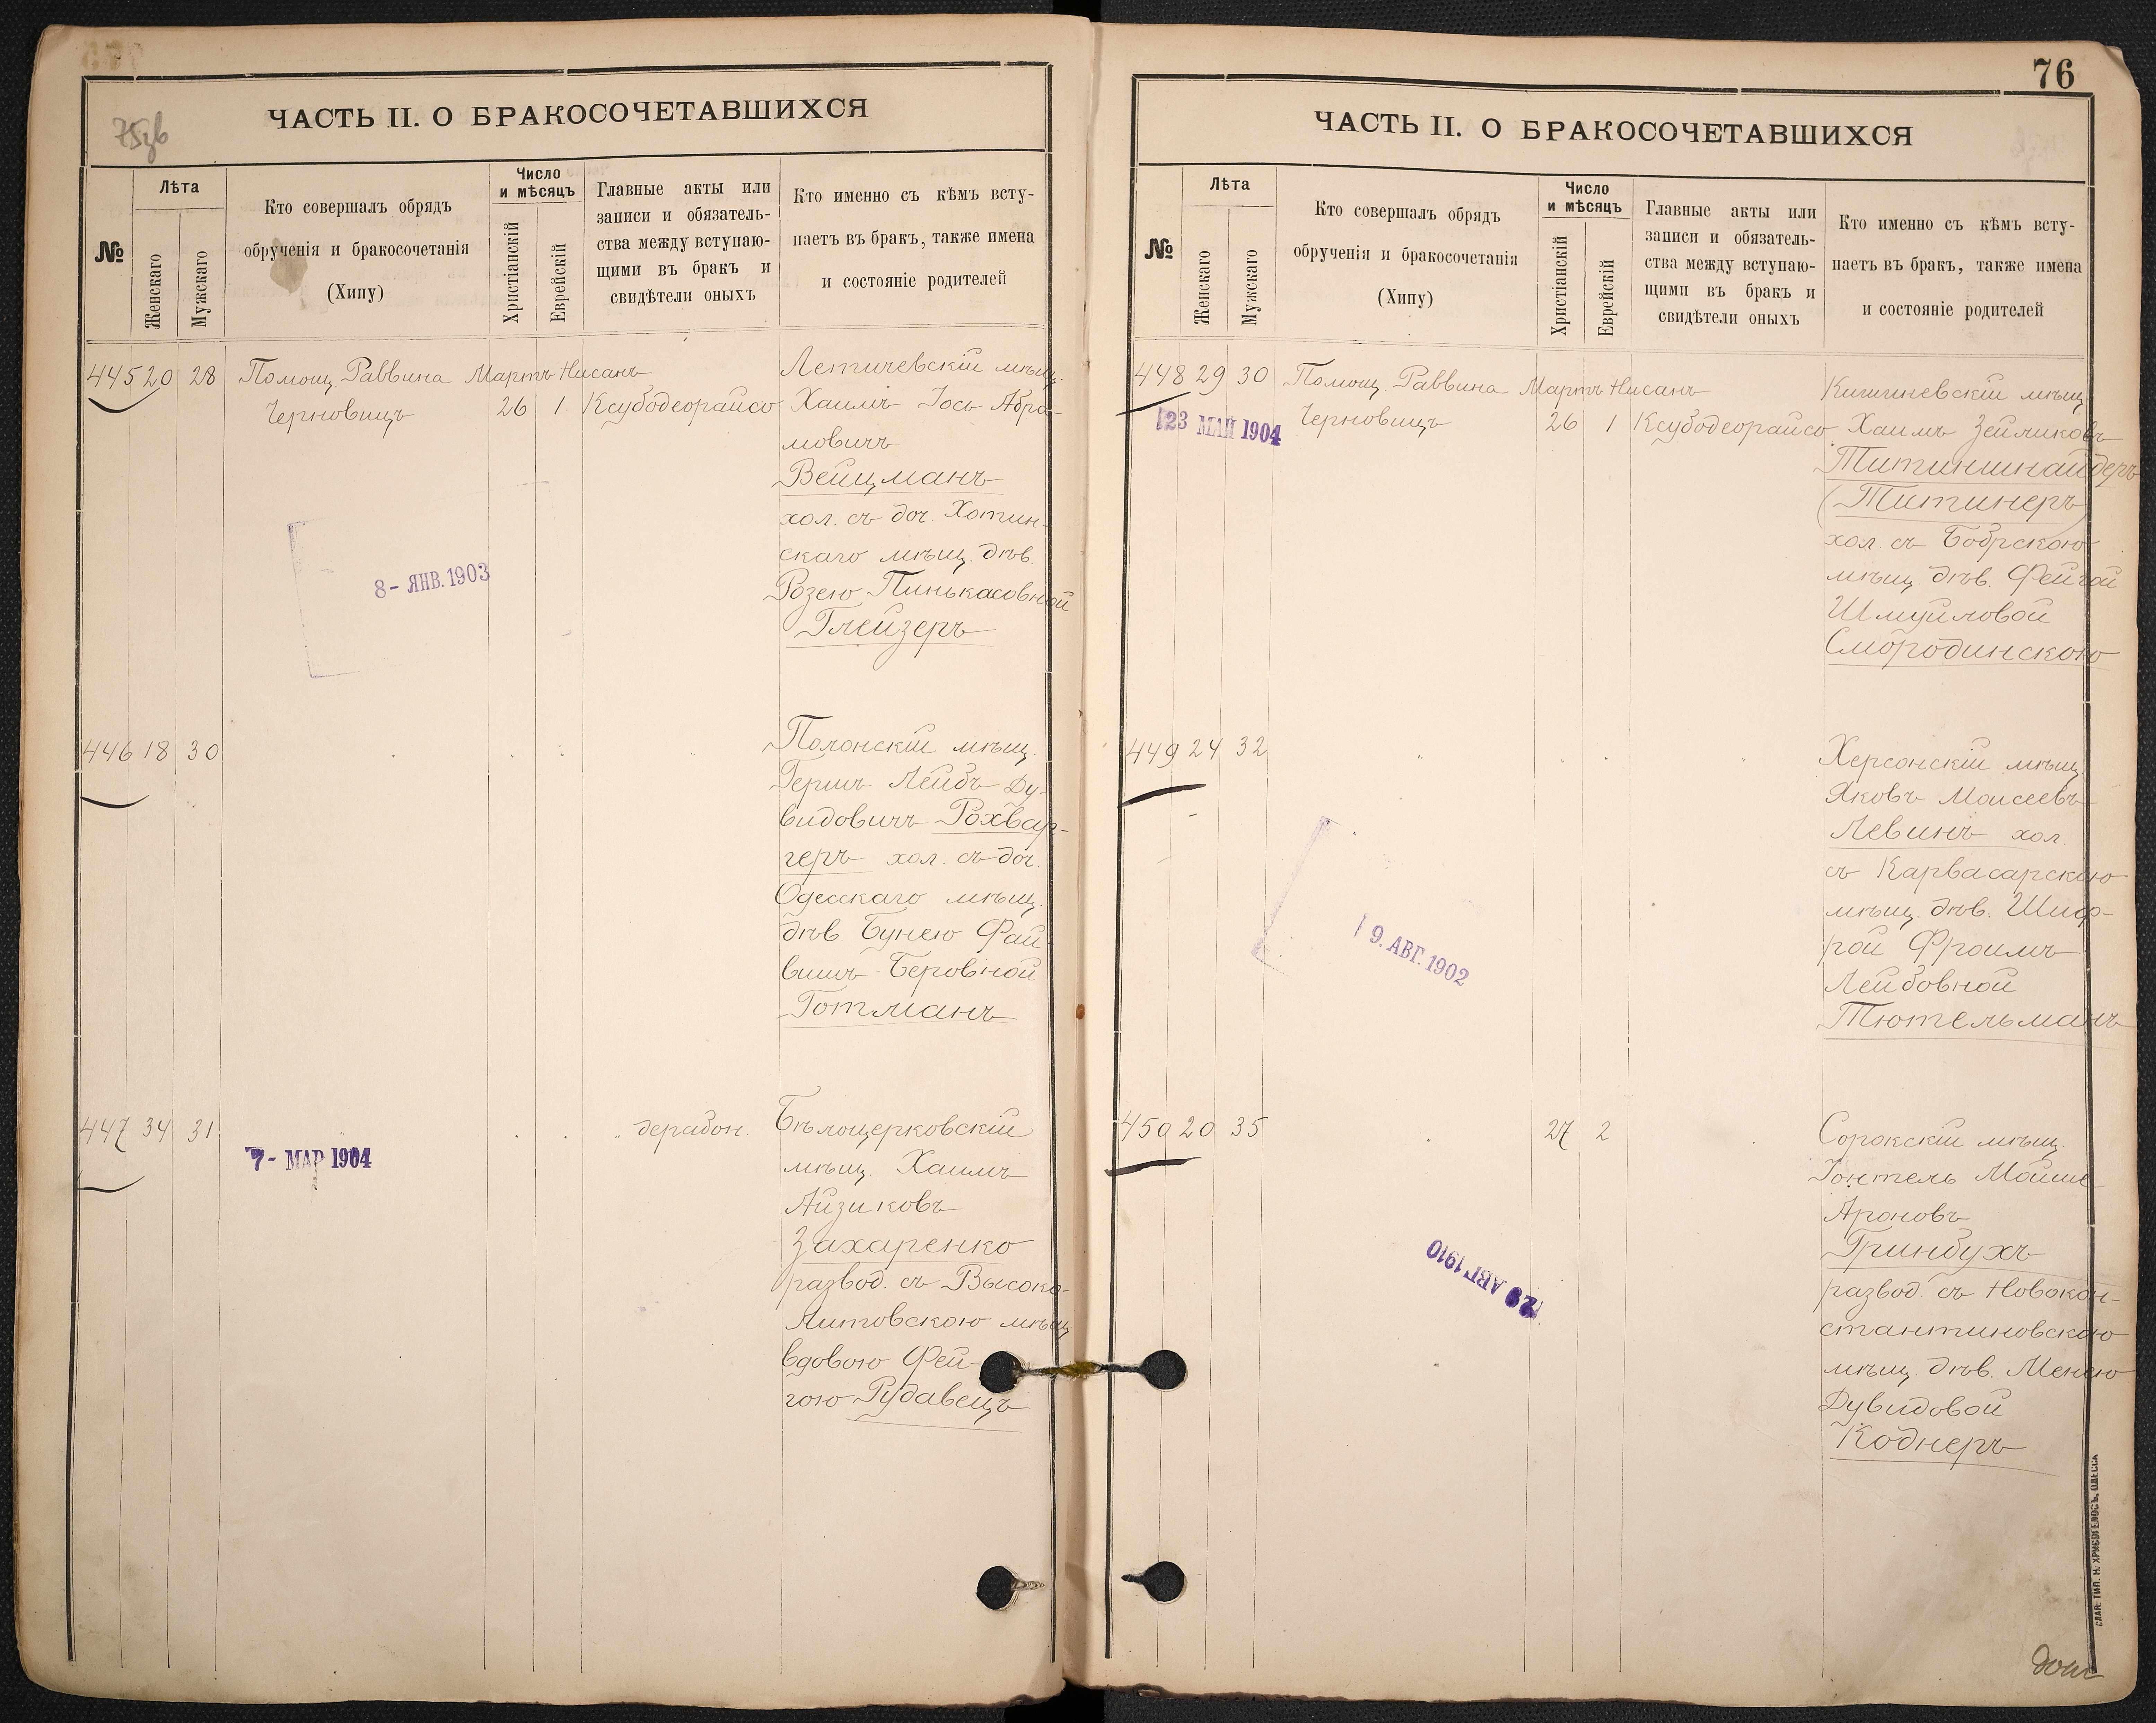 75зв
ЧАСТЬ II. О БРАКОСОЧЕТАВШИХСЯ
№
Лѣта
Женскаго
Мужскаго
Кто совершалъ обрядъ
обрученія и бракосочетанія
(Хипу)
Число
и мѣсяцъ
Христіанскій
Еврейскій
Главные акты или
записи и обязатель-
ства между вступаю-
щими въ бракъ и
свидѣтели оныхъ
Кто именно съ кѣмъ всту-
паетъ въ бракъ, также имена
и состояніе родителей
445 20 28 Помощ. Раввина Мартъ Нисанъ
Черновицъ 26 1 Ксубодеорайсо
Летичевскій мѣщ.
Хаимъ Іось Абра-
мовичъ
Вейцманъ
хол. съ доч. Хотин-
скаго мѣщ. дѣв.
Розею Пинькасовной
Глейзеръ
8- ЯНВ. 1903
446 18 30
Полонскій мѣщ.
Гершъ Лейбъ Ду-
видовичъ Рохвар-
геръ хол. съ доч.
Одесскаго мѣщ.
дѣв Бунею Фай-
вишъ-Беровной
Готманъ
447 34 31 дерабон.
7- МАР 1904
Бѣлоцерковскій
мѣщ. Хаимъ
Айзиковъ
Захаренко
развод. съ Высоко-
Литовскою мѣщ
вдовою Фей-
гою Рудавецъ
76
ЧАСТЬ II. О БРАКОСОЧЕТАВШИХСЯ
№
Лѣта
Женскаго
Мужскаго
Кто совершалъ обрядъ
обрученія и бракосочетанія
(Хипу)
Число
и мѣсяцъ
Христіанскій
Еврейскій
Главные акты или
записи и обязатель-
ства между вступаю-
щими въ бракъ и
свидѣтели оныхъ
Кто именно съ кѣмъ всту-
паетъ въ бракъ, также имена
и состояніе родителей
448 29 30 Помощ. Раввина Мартъ Нисанъ
Черновицъ 26 1 Ксубодеорайсо
23 МАЙ 1904
Кишиневскій мѣщ
Хаимъ Зейликовъ
Титиншнайдеръ
(Титинеръ)
хол. съ Бобрскою
мѣщ. дѣв. Фейгой
Шмуйловой
Смородинскою
449 24 32
Херсонскій мѣщ.
Яковъ Моисеевъ
Левинъ хол.
съ Карвасарскою
мѣщ. дѣв. Шиф-
рой Фроимъ
Лейбовной
Тютельманъ
9. АВГ. 1902
450 20 35 27 2
Сорокскій мѣщ.
Іонтель Мойше
Ароновъ
Гринбухъ
развод. съ Новокон-
стантиновскою
мѣщ. дѣв. Менею
Дувидовой
Коднеръ
АВГ 1910